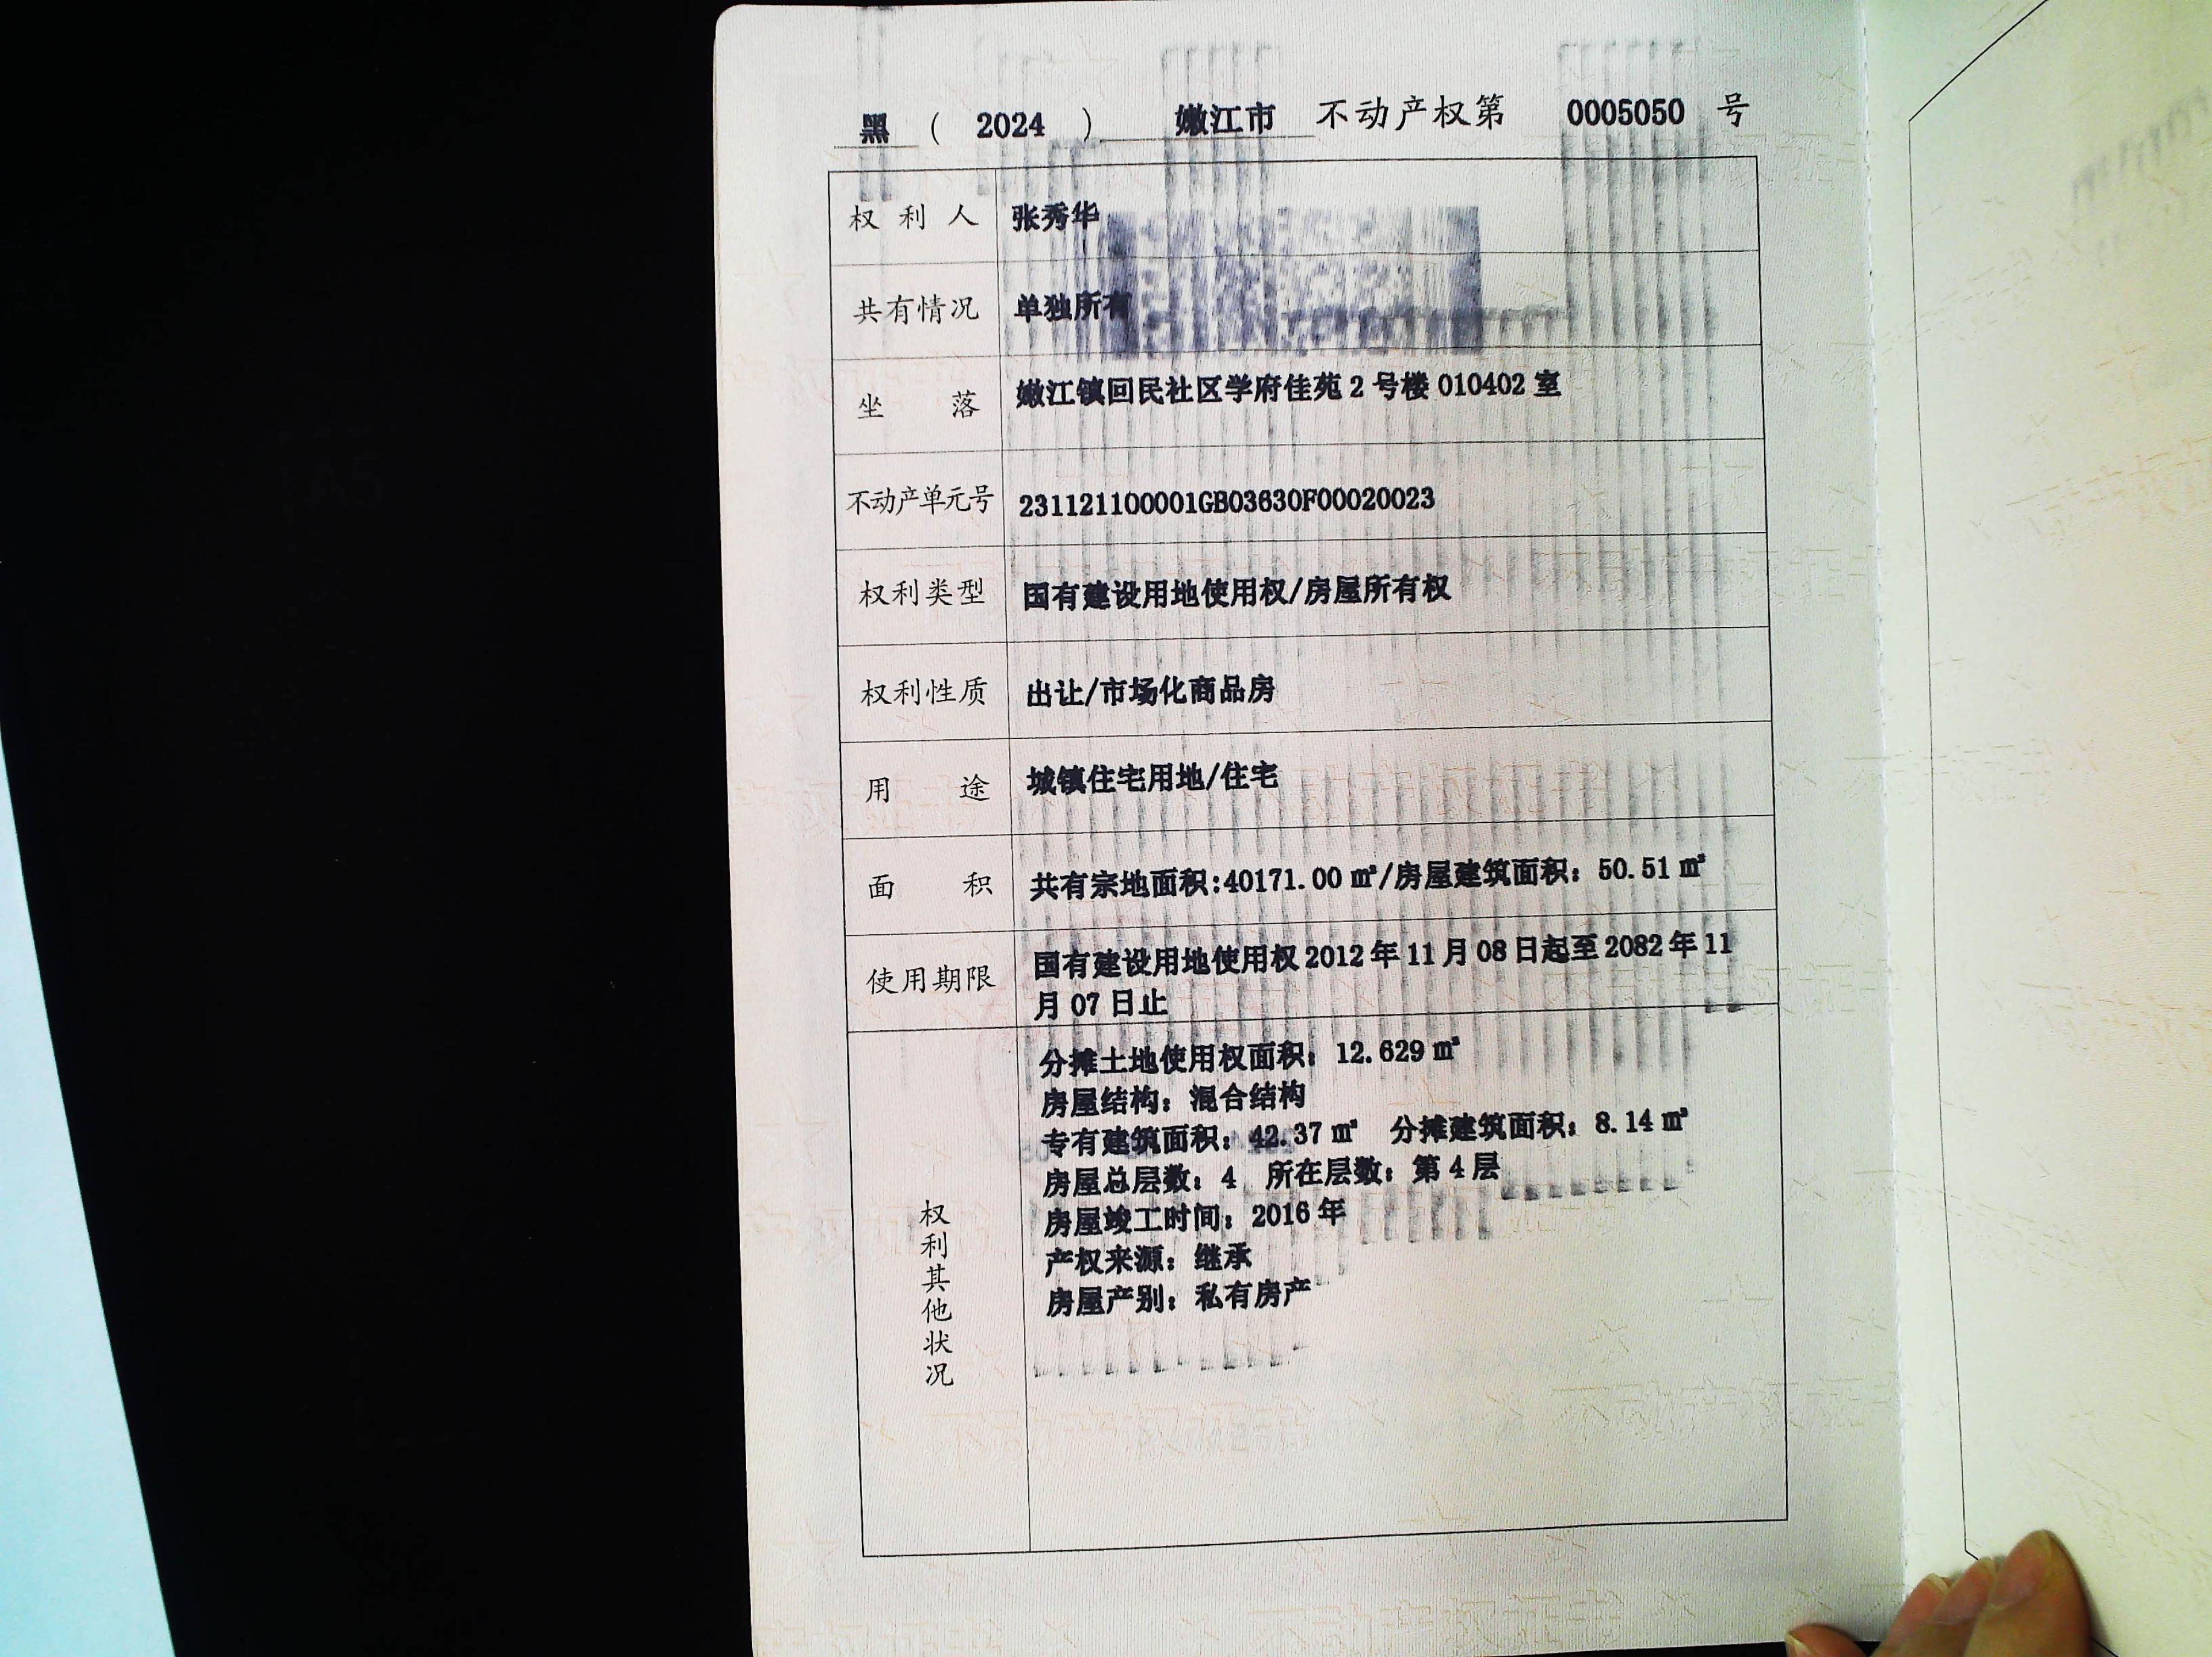 黑 ( 2024 ) 嫩江市 不动产权第 0005050 号
权利人 张秀华
共有情况 单独所有
坐落 嫩江镇回民社区学府佳苑 2 号楼 010402 室
不动产单元号 231121100001GB03630F00020023
权利类型 国有建设用地使用权/房屋所有权
权利性质 出让/市场化商品房
用途 城镇住宅用地/住宅
面积 共有宗地面积:40171.00 ㎡/房屋建筑面积：50.51 ㎡
使用期限 国有建设用地使用权 2012 年 11 月 08 日起至 2082 年 11
月 07 日止
权利其他状况
分摊土地使用权面积：12.629 ㎡
房屋结构：混合结构
专有建筑面积：42.37 ㎡ 分摊建筑面积：8.14 ㎡
房屋总层数：4 所在层数：第 4 层
房屋竣工时间：2016 年
产权来源：继承
房屋产别：私有房产